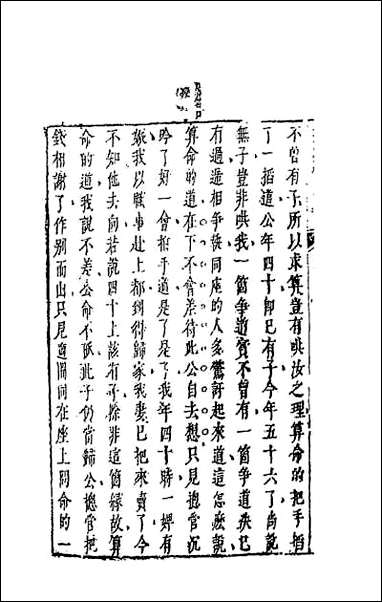 不曾有子所以求算豈有哄汝之理算命的把手掐
了一掐道公年四十即已有子今年五十六了尚說
無子豈非哄我一箇爭道實不曾有一箇爭道決已
有過遞相爭執同座的人多驚訝起來道這怎麽說
算命的道在下不會差待此公自去想只見總管沉
吟了好一會拍手道是了是了我年四十時一婢有
娠我以職事赴上都到得歸家我妻已把來賣了今
不知他去向若說四十上該有子除非這箇緣故算
命的道我說不差公命不孤此子仍當歸公總管把
錢相謝了作別而出只見適間同在座上問命的一